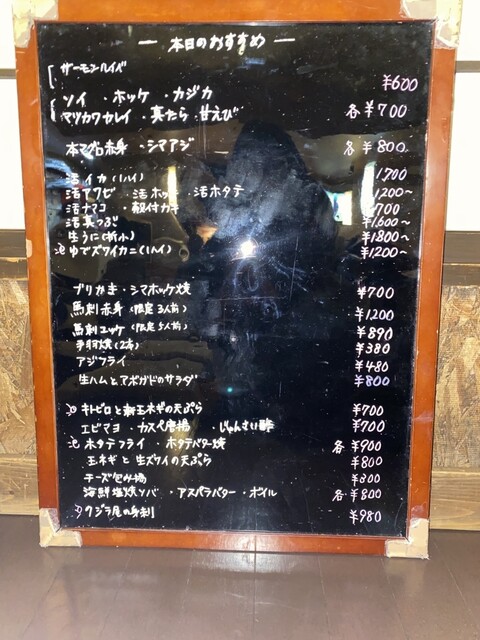 本日のおすすめ
サーモンルイベ ¥600
ソイ ・ホッケ ・カジカ
マツカワカレイ ・真たら ・甘えび 各¥700
本マグロ赤身 ・シマアジ 各¥800
活イカ(1ハイ) 1,700
活アワビ ・活ホッキ ・活ホタテ 1,200~
活ナマコ ・殻付カキ ¥700
活真つぶ ¥1,600~
生うに(折小) ¥1800~
ゆでズワイカニ(1ハイ) ¥1,200~
ブリかま ・シマホッケ焼 ¥700
馬刺赤身(限定3人前) ¥1,200
馬刺ユッケ(限定5人前) ¥890
手羽焼(2本) ¥380
アジフライ ¥480
生ハムとアボガドのサラダ ¥800
キトピロと新玉ネギの天ぷら ¥700
エビマヨ ・カスベ唐揚 ・じゅんさい酢 ¥700
ホタテフライ ・ホタテバター焼 各¥900
玉ネギと生ズワイの天ぷら ¥800
チーズ包み揚 ¥800
海鮮塩焼ソバ ・アスパラバター・ボイル 各¥800
クジラ尾の身刺 ¥980